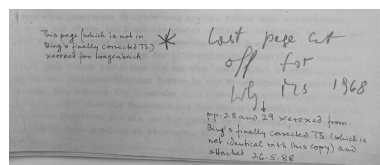 This page (which is not in
Bing's finally corrected TS.)
xeroxed for Langenbach
Last page cut
off for
MS 1968
pp. 28 and 29 xeroxed from
Bing's finally corrected TS. (which is
not identical with this copy) and
attached 26.5.88